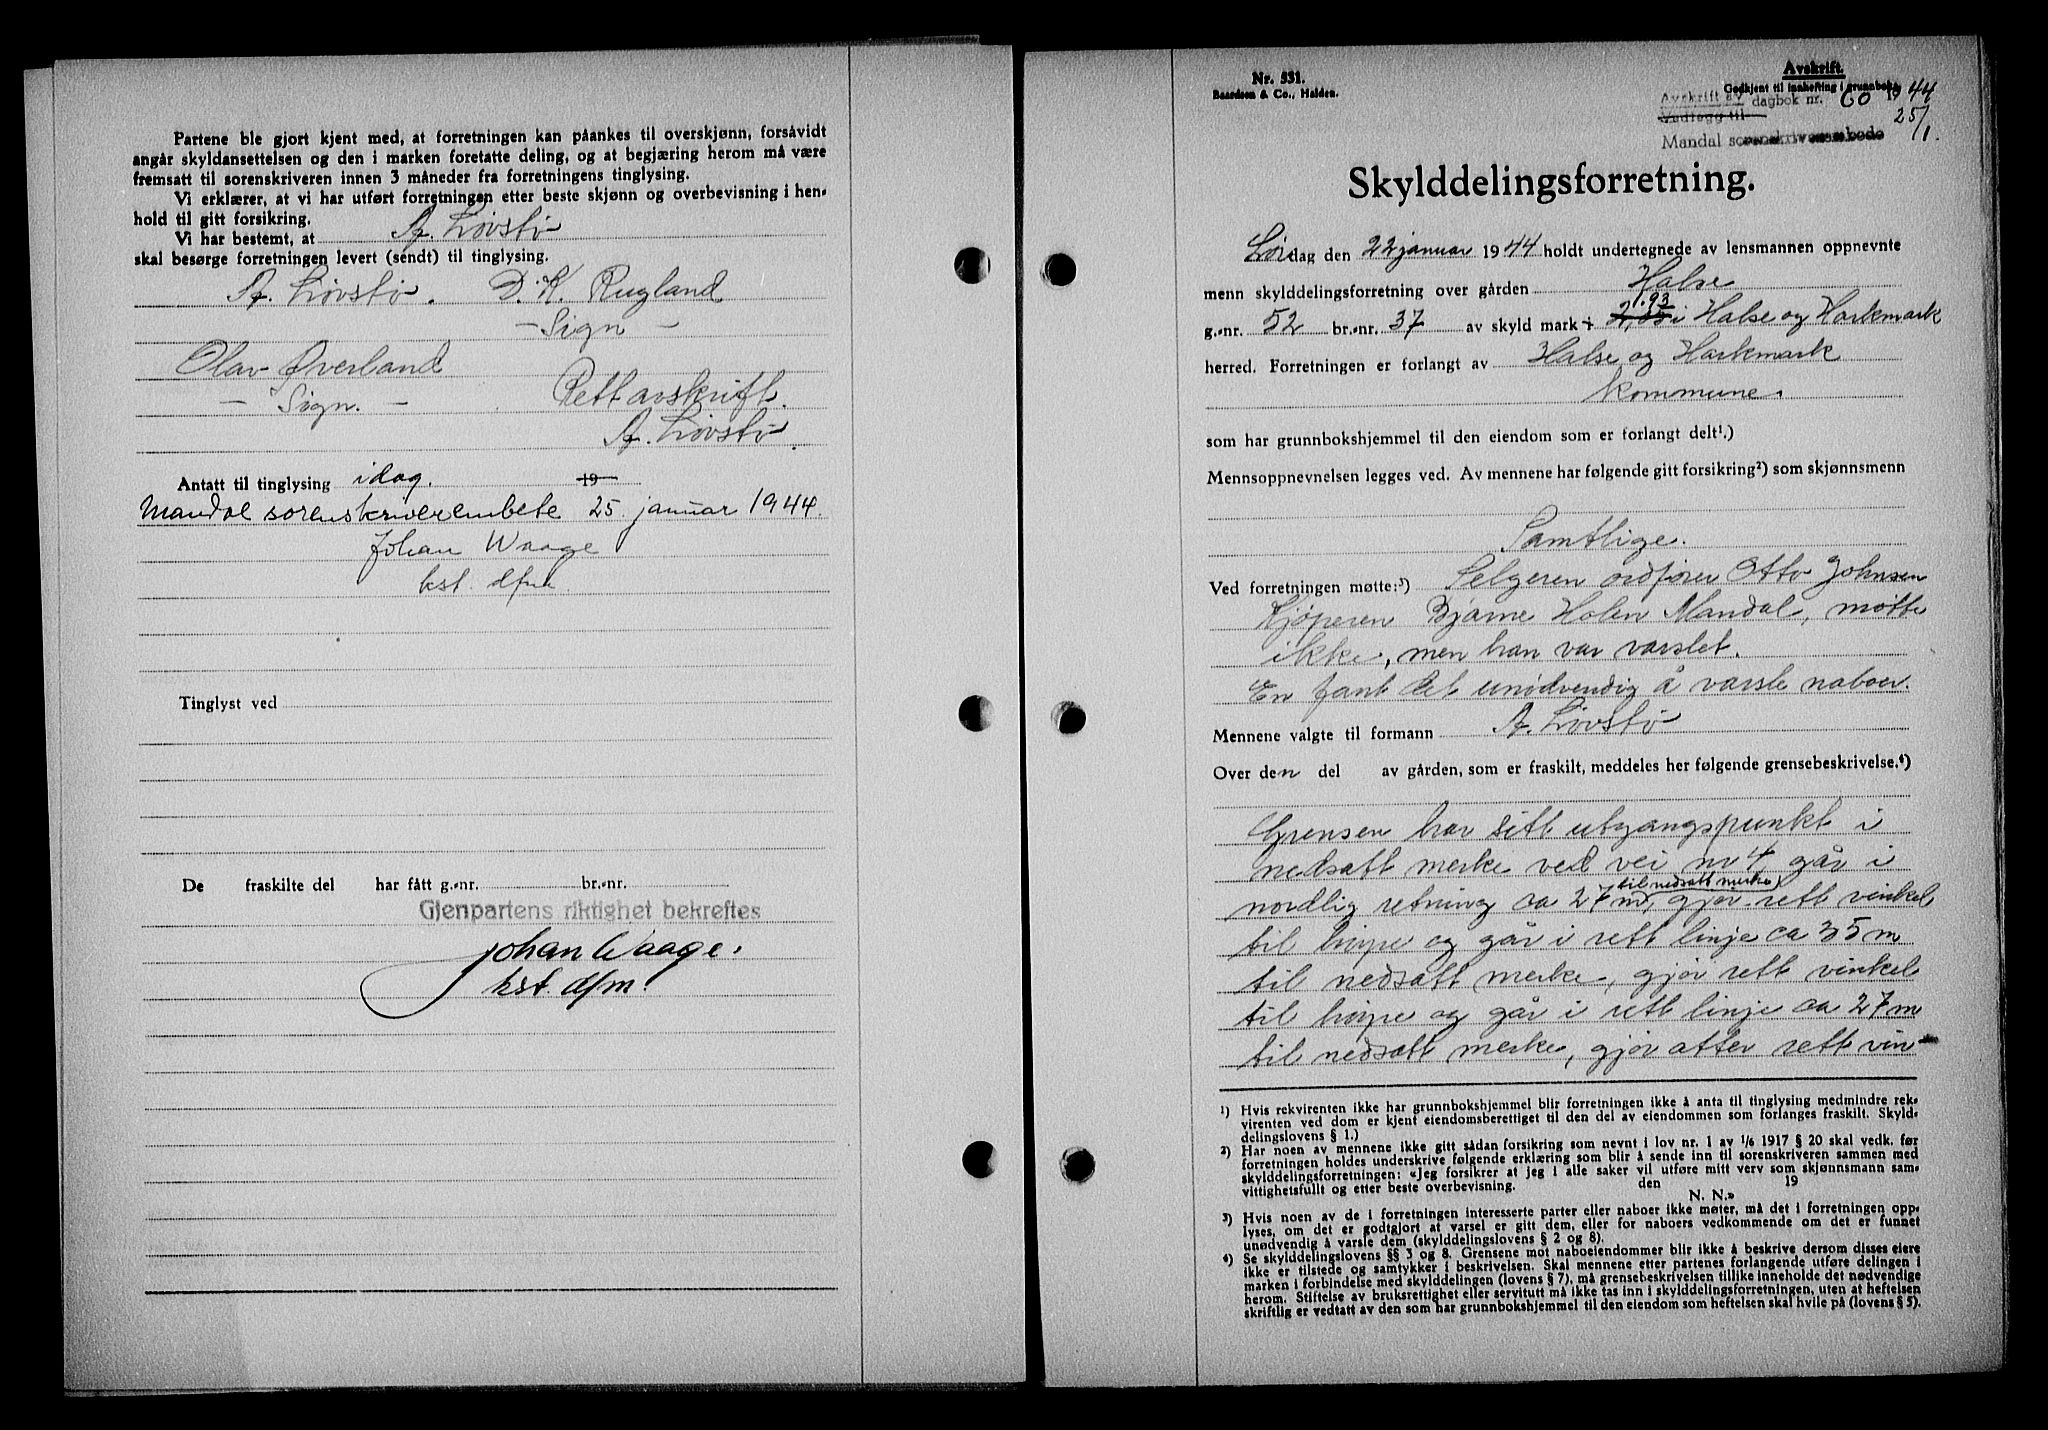 Partene ble gjort kjent med, at forretningen kan påankes til overskjønn, forsåvidt
angår skyldansettelsen og den i marken foretatte deling, og at begjæring herom må være
fremsatt til sorenskriveren innen 3 måneder fra forretningens tinglysing.
Vi erklærer, at vi har utført forretningen etter beste skjønn og overbevisning i hen-
hold til gitt forsikring.
Vi har bestemt, at A. Løvstø
skal besørge forretningen levert (sendt) til tinglysing.
A. Løvstø. D. K. Rugland
- Sign -
Olav Øverland
- Sign. - Rett avskrift.
A. Løvstø.
Antatt til tinglysing idag. 19
Mandal sorenskriverembete 25. januar 1944.
Johan Waage
kst. dfm.
Tinglyst ved
De fraskilte del har fått g.-nr. br.-nr.
Gjenpartens riktighet bekreftes
Johan Waage.
kst. dfm.
Nr. 531.
Baardsen & Co., Halden.
Avskrift.
Godkjent til innhefting i grunnboka
Avskrift av
Vedlegg til dagbok nr. 60 1944
25/1.
Mandal sorenskriverembede
Skylddelingsforretning.
Lørdag den 22 januar 1944 holdt undertegnede av lensmannen oppnevnte
menn skylddelingsforretning over gården Halse
1.93
g.-nr. 52 br.-nr. 37 av skyld mark 2,05 i Halse og Harkmark
herred. Forretningen er forlangt av Halse og Harkmark
kommune.
som har grunnbokshjemmel til den eiendom som er forlangt delt¹.)
Mennsoppnevnelsen legges ved. Av mennene har følgende gitt forsikring²) som skjønnsmenn
Samtlige.
Ved forretningen møtte:³) Selgeren ordfører Otto Johnsen
Kjøperen Bjarne Holen Mandal, møtte
ikke, men han var varslet.
En fant det unødvendig å varsle naboer.
Mennene valgte til formann A. Løvstø
Over den del av gården, som er fraskilt, meddeles her følgende grensebeskrivelse.⁴)
Grensen har sitt utgangspunkt i
nedsatt merke ved vei nr 4 går i
til nedsatt merke,
nordlig retning ca 27 m, gjør rett vinkel
til høire og går i rett linje ca 35 m
til nedsatt merke, gjør rett vinkel
til høire og går i rett linje ca 27 m
til nedsatt merke, gjør atter rett vin-
¹) Hvis rekvirenten ikke har grunnbokshjemmel blir forretningen ikke å anta til tinglysing medmindre rek-
virenten ved dom er kjent eiendomsberettiget til den del av eiendommen som forlanges fraskilt. Skyld-
delingslovens § 1.)
²) Har noen av mennene ikke gitt sådan forsikring som nevnt i lov nr. 1 av 1/6 1917 § 20 skal vedk. før
forretningen holdes underskrive følgende erklæring som blir å sende inn til sorenskriveren sammen med
skylddelingsforretningen: «Jeg forsikrer at jeg i alle saker vil utføre mitt verv som skjønnsmann sam-
vittighetsfullt og etter beste overbevisning. den 19
N. N.»
³) Hvis noen av de i forretningen interesserte parter eller naboer ikke møter, må det i forretningen opp-
lyses, om det er godtgjort at varsel er gitt dem, eller for naboers vedkommende om det er funnet
unødvendig å varsle dem (skylddelingslovens § 2 og 8).
⁴) Se skylddelingslovens §§ 3 og 8. Grensene mot naboeiendommer blir ikke å beskrive dersom disses eiere
ikke er tilstede og samtykker i beskrivelsen. Skal mennene etter partenes forlangende utføre delingen i
marken i forbindelse med skylddelingen (lovens § 7), må grensebeskrivelsen tillike inneholde det nødvendige
herom. Stiftelse av bruksrettighet eller servitutt må ikke tas inn i skylddelingsforretningen, uten at heftelsen
skriftlig er vedtatt av den som har grunnbokshjemmel til den eiendom som heftelsen skal hvile på (lovens § 5).